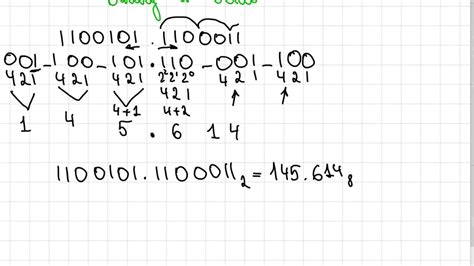 1100101.1100011
001-100-101.110-001-100
421 421 421 2²2¹2⁰ 421 421
421
4+1 4+2
1 4 5 . 6 1 4
1100101.1100011₂=145.614₈